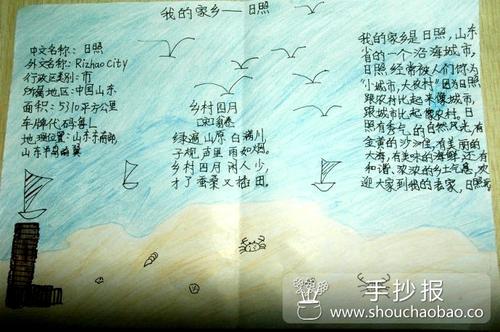 我的家乡——日照
中文名称：日照
外文名称：Rizhao City
行政区类别：市
所属地区：中国山东
面积：5310平方公里
车牌代码鲁L
地理位置：山东东南部
山东半岛南翼
乡村四月
绿遍山原白满川，
子规声里雨如烟。
乡村四月闲人少，
才了蚕桑又插田。
我的家乡是日照，山东
省的一个沿海城市，
日照经常被人们称为
"小城市，大农村"因为日照
跟农村比起来像城市，
跟城市比起来像农村。日
照有秀气的自然风光，有
金黄的沙滩，有美丽的
大海，有美味的海鲜，还有
和谐、浓浓的乡土气息，欢
迎大家到我的老家，日照玩
手抄报
www.shouchaobao.co